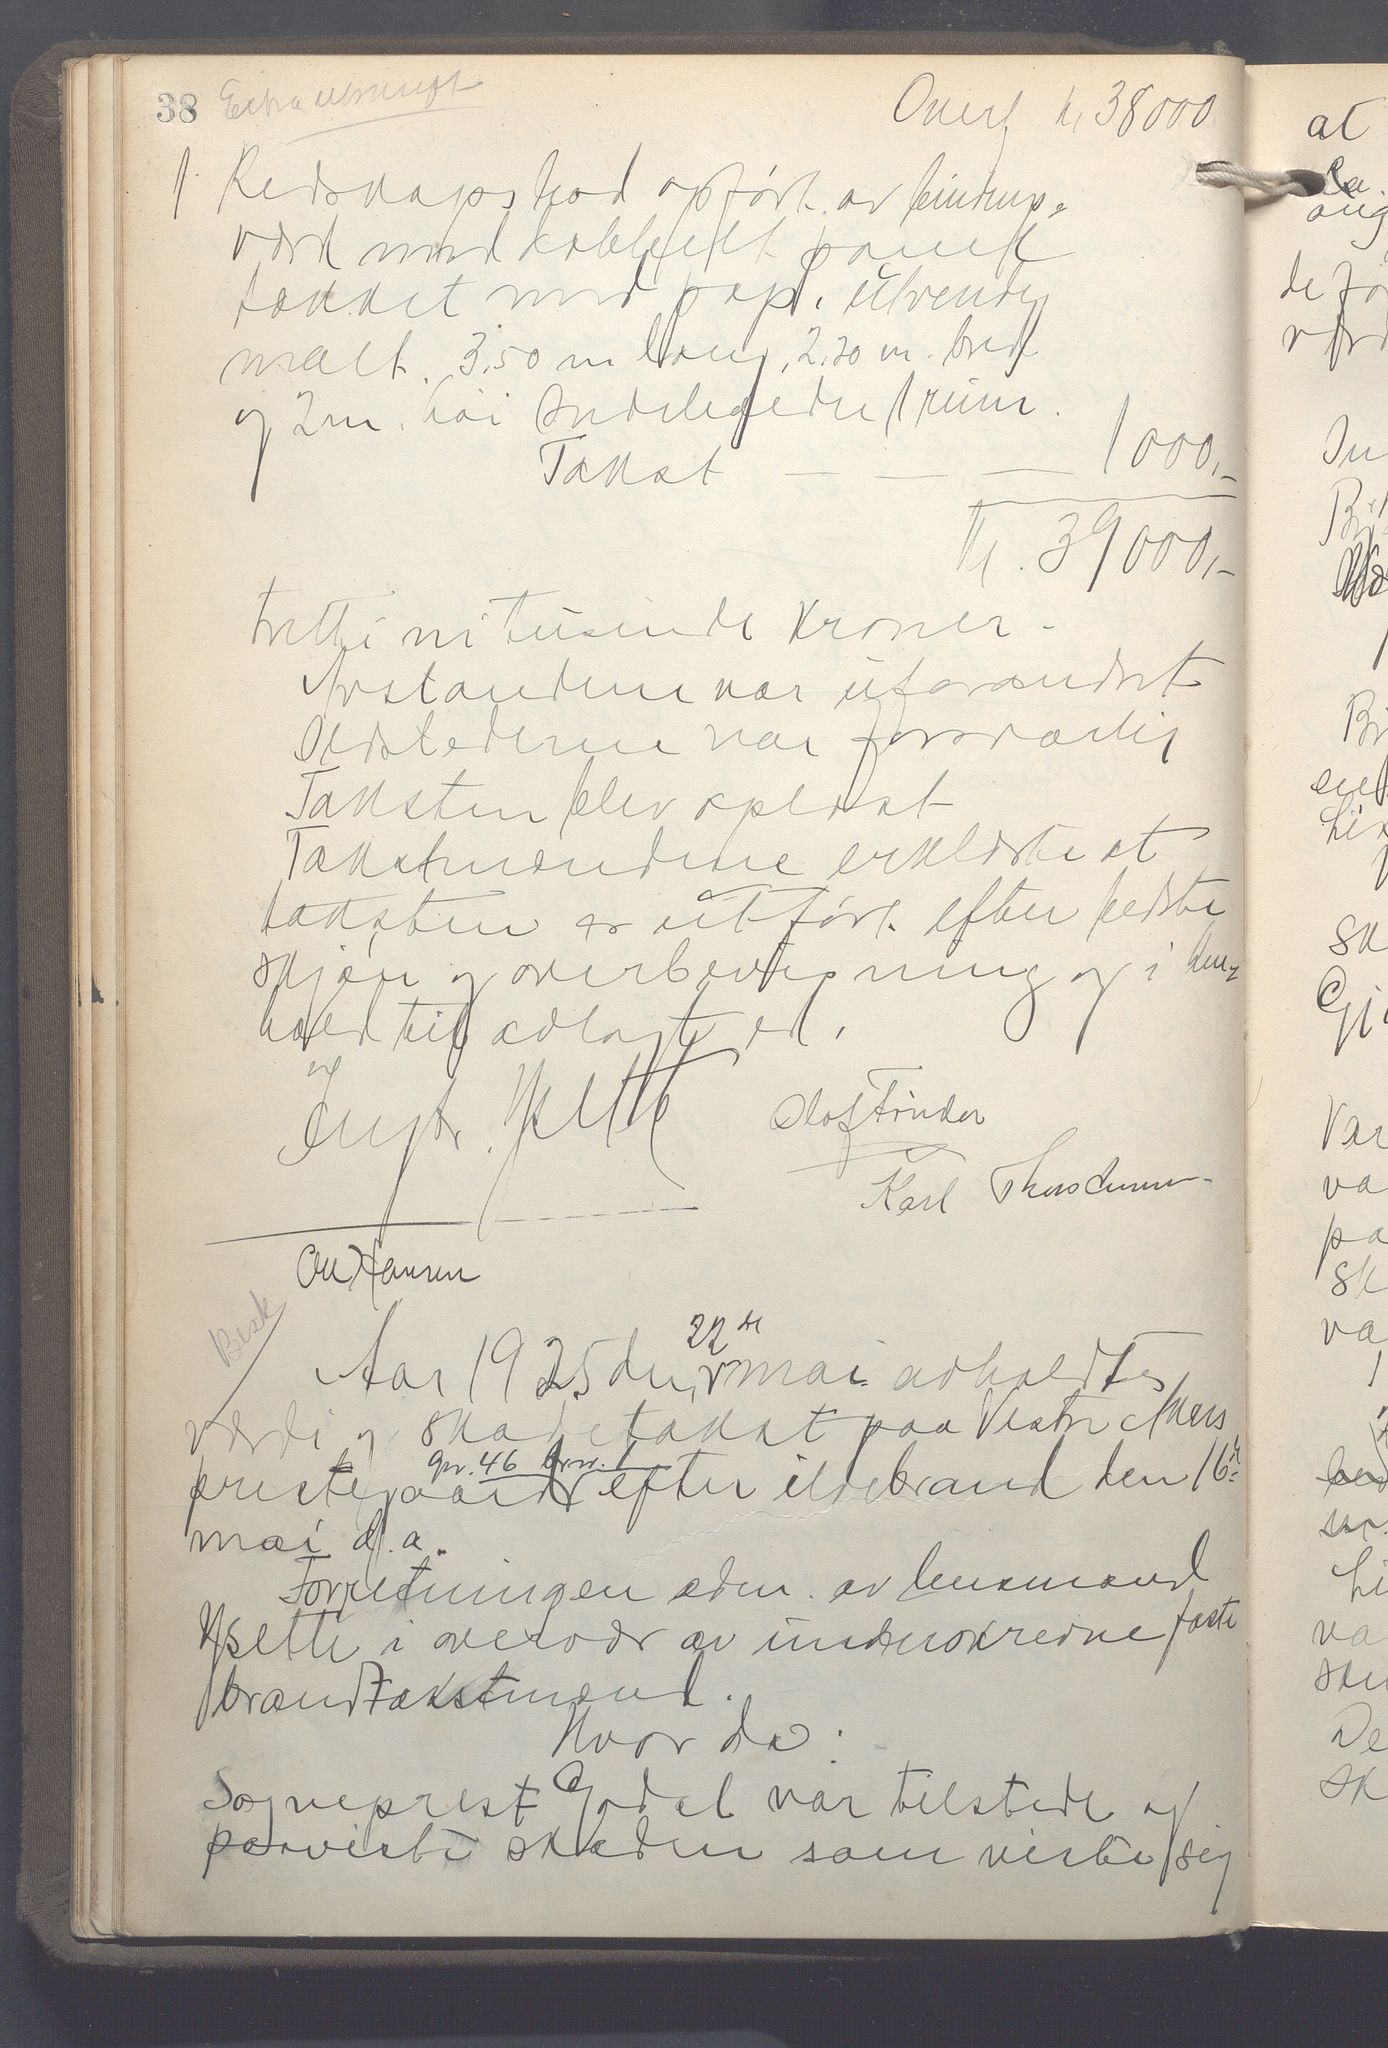 38 Extra utskrift Overf kr 38000
1 Redskapsbod opført av bindings-
værk med dobbelt panel
tækket med pap, utvendig
malt. 3,50 m lang, 2,20 m. bred
og 2 m. høi Indeholder 1 rum.
Takst — — — 1000,-
Kr. 39000,-
tretti ni tusinde kroner -
Avstandene var uforandret
Ildstederne var forsvarlig
Taksten blev oplæst
Takstmændene erklærte at
taksten er utført efter bedste
skjøn og overbevisning og i hen-
hold til avlagt ed.
Hjelle Olaf Tinder
Karl
Ole Hansen
Besk
Aar 1925 den 22de mai avholdtes
værdi og skadetakst paa Vestre Akers
gnr. 46 brnr. 1
prestegaard efter ildebrand den 16de
mai d.a.
Forretningen adm. av lensmand
i overvær av undertegnede faste
brandtakstmænd.
Hvorda:
Sogneprest Gjdal var tilstede og
paaviste skaden som viste sig
at
de
Gj
Var
va
pa
sk
va
De
sk